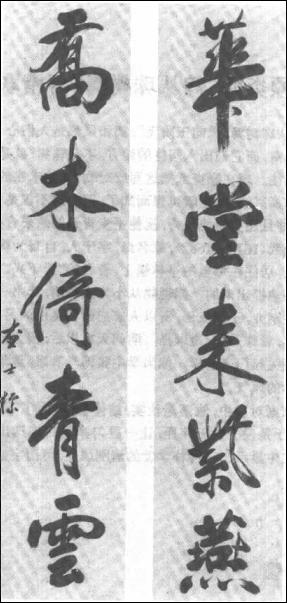 華堂来紫燕
喬木倚青雲
查士標